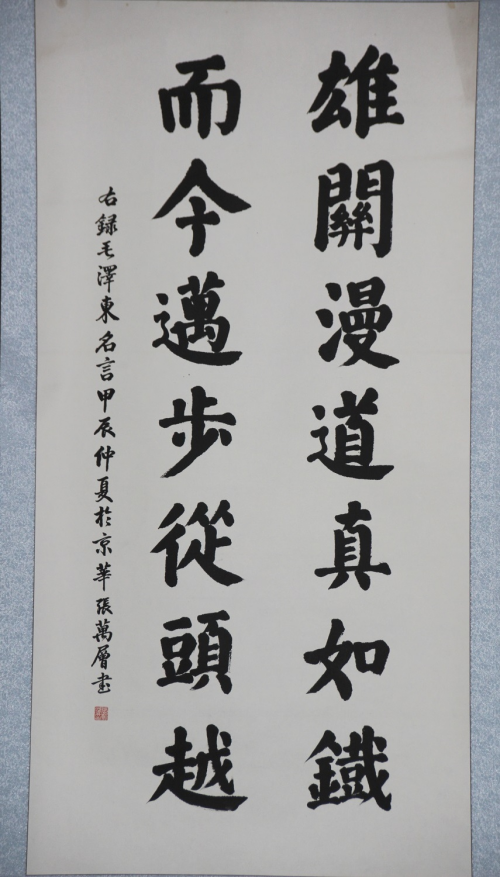 雄關漫道真如鐵
而今邁步從頭越
右録毛澤東名言甲辰仲夏於京華張萬層書